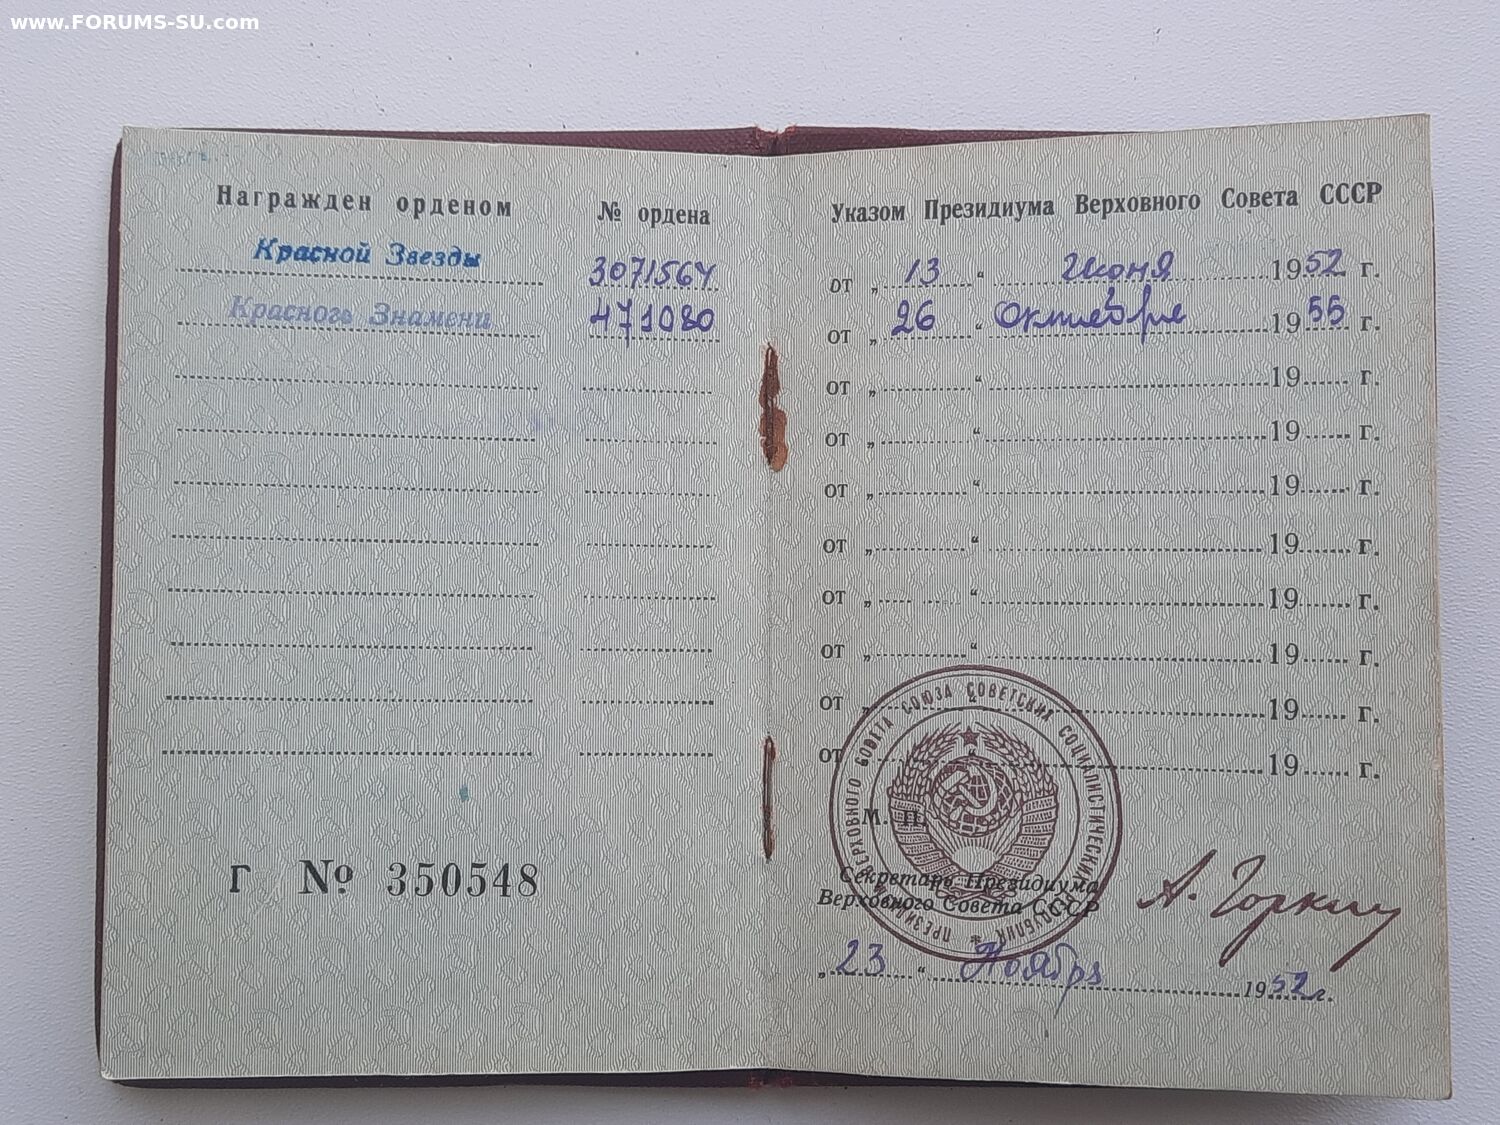 www.FORUMS-SU.com
Награжден орденом № ордена Указом Президиума Верховного Совета СССР
Красной Звезды 3071564 от „ 13 “ Июня 1952 г.
Красного Знамени 471080 от „ 26 “ Октября 1955 г.
от „ “ 19 г.
от „ “ 19 г.
от „ “ 19 г.
от „ “ 19 г.
от „ “ 19 г.
от „ “ 19 г.
от „ “ 19 г.
от „ “ 19 г.
М. П.
ПРЕЗИДИУМ ВЕРХОВНОГО СОВЕТА СОЮЗА СОВЕТСКИХ СОЦИАЛИСТИЧЕСКИХ РЕСПУБЛИК *
Г № 350548
Секретарь Президиума
Верховного Совета СССР А. Горкин
„ 23 “ Ноября 1952 г.